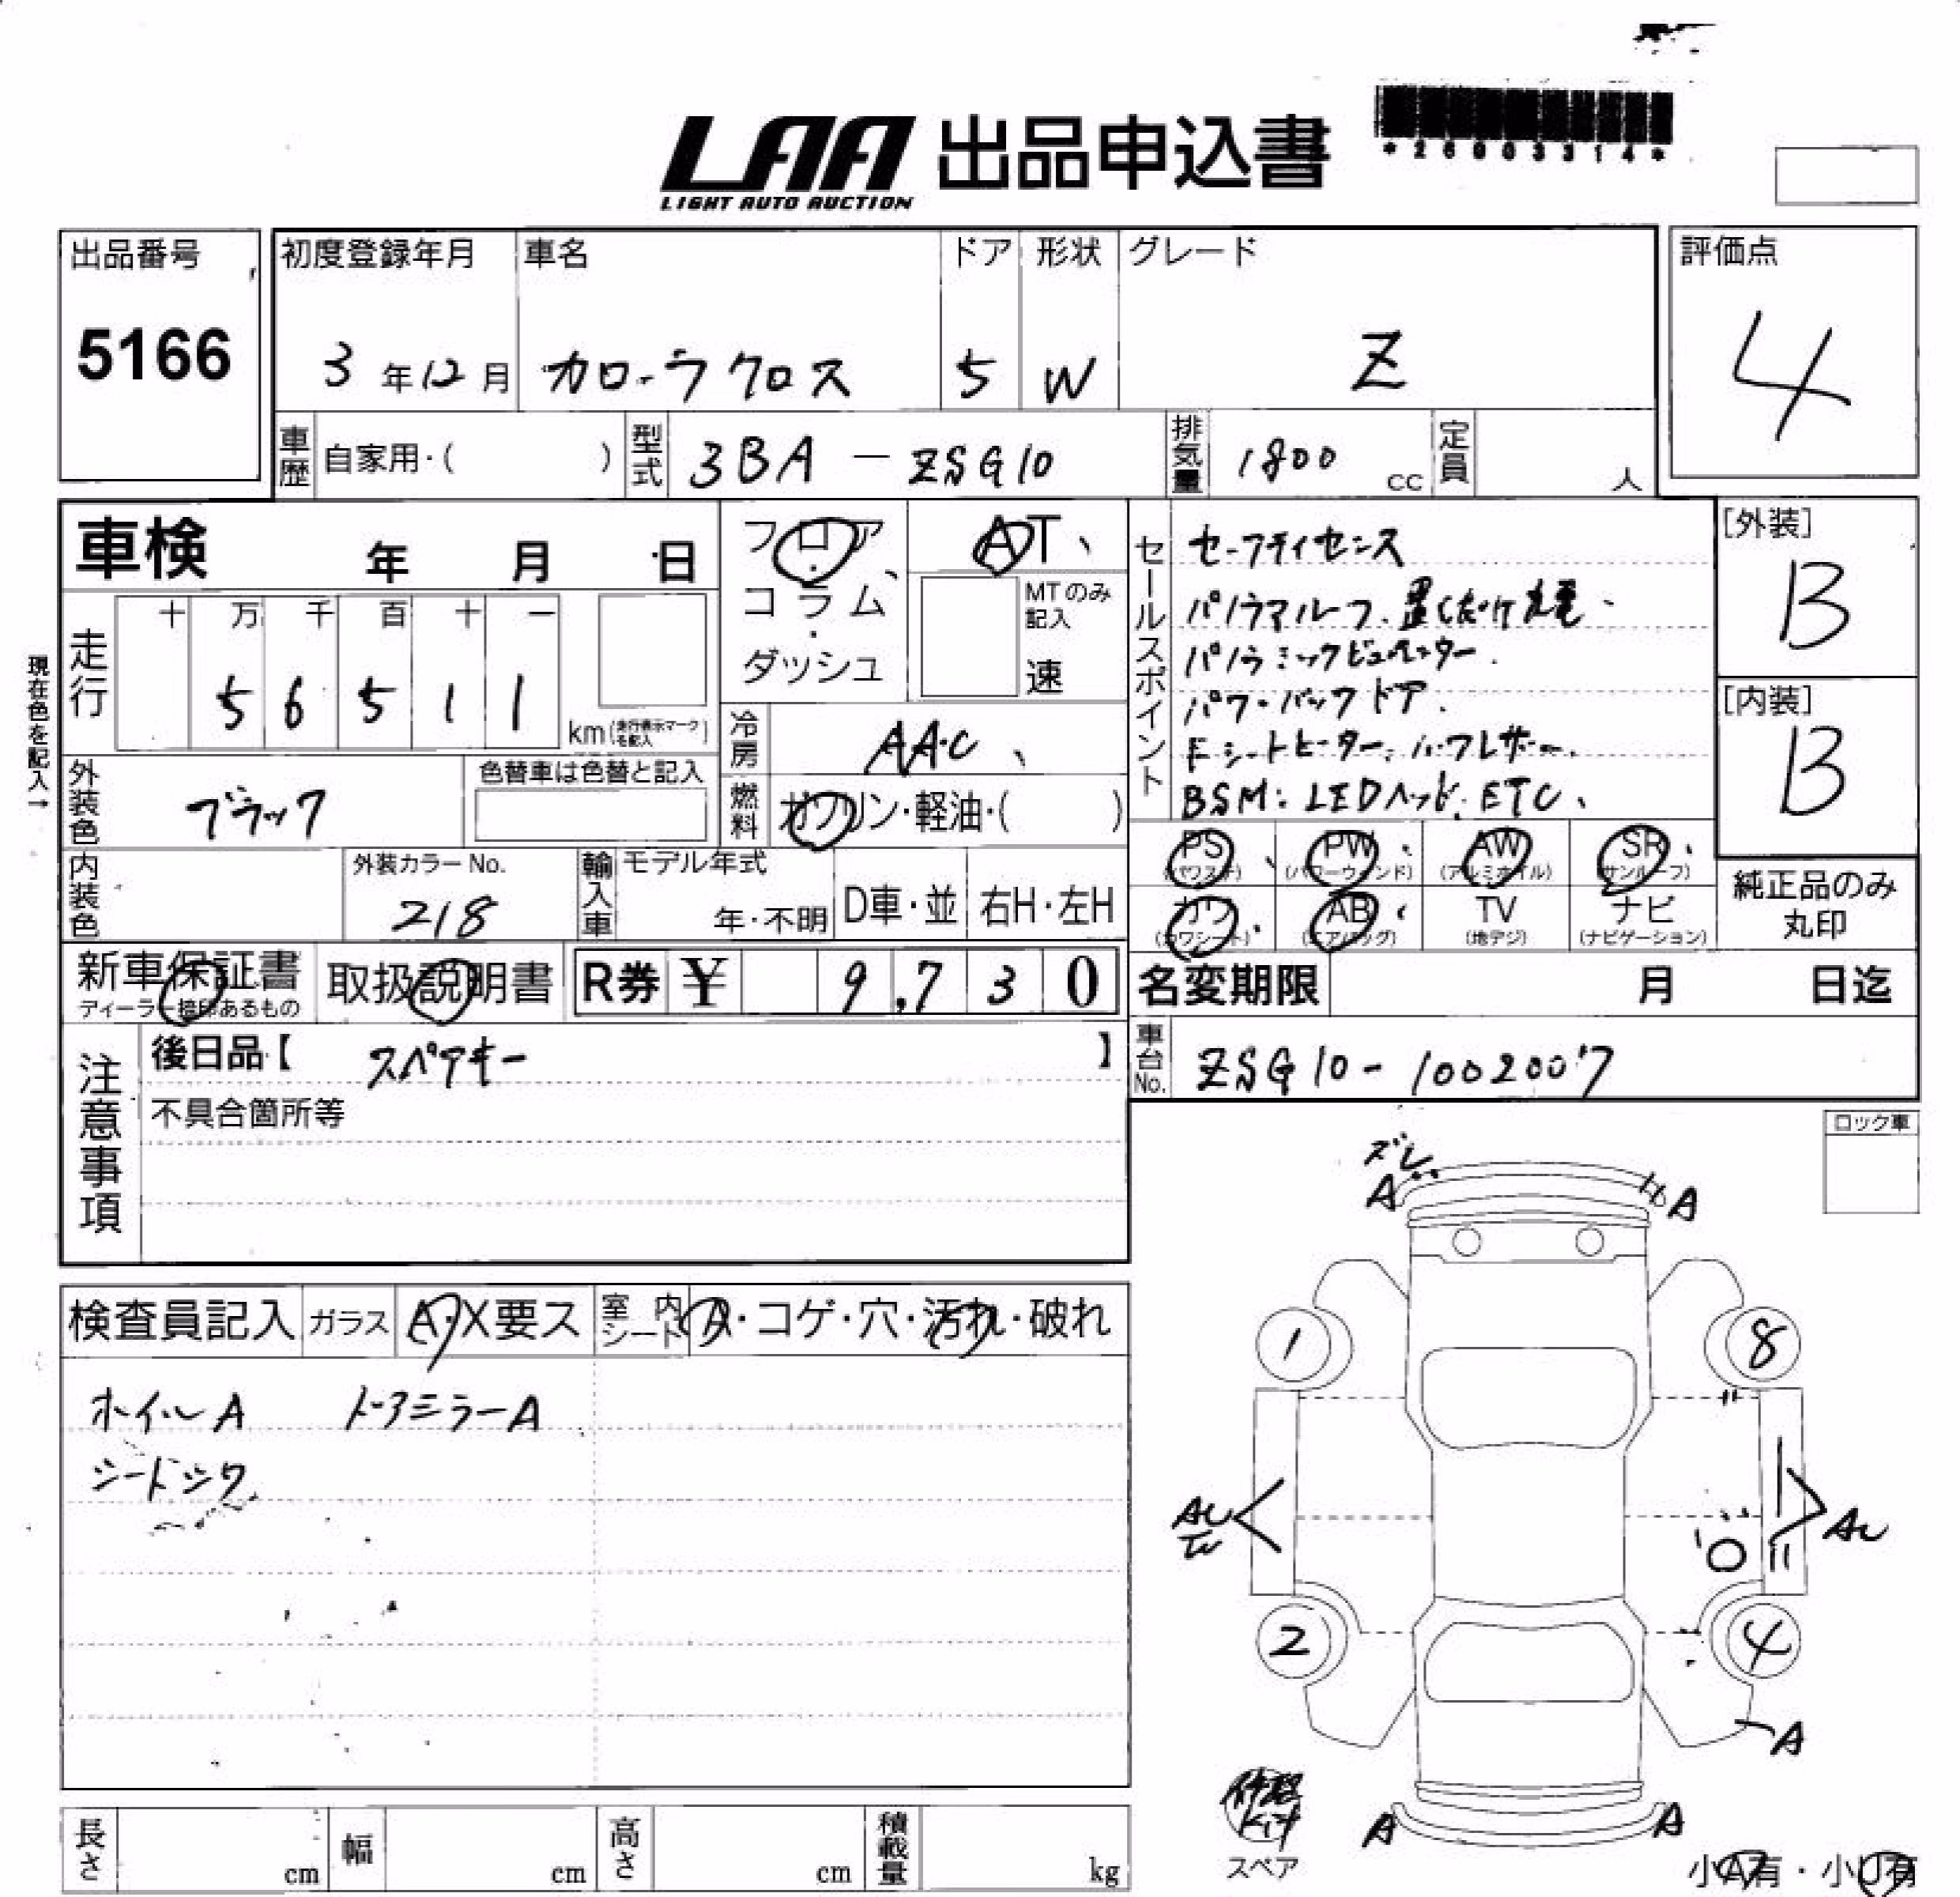 LAA 出品申込書
LIGHT AUTO AUCTION
*26003314*
出品番号
5166
初度登録年月
3年12月
車名
カローラクロス
ドア
5
形状
W
グレード
Z
評価点
4
車歴 自家用・( )
型式 3BA－ZSG10
排気量 1800 cc
定員 人
車検 年 月 日
フロア
・
コラム
・
ダッシュ
AT、
MTのみ記入
速
セールスポイント
セーフティセンス
パノラマルーフ.置くだけ充電.
パノラミックビュモニター.
パワーバックドア.
Fシートヒーター.ハーフレザー.
BSM:LEDヘッド.ETC.
[外装]
B
[内装]
B
現在色を記入→
走行
十 万 千 百 十 一
5 6 5 1 1
km(走行表示マークを記入)
冷房 AAC、
燃料 ガソリン・軽油・( )
外装色 ブラック
色替車は色替と記入
内装色
外装カラーNo.
218
輸入車
モデル年式
年・不明
D車・並
右H・左H
PS(パワステ) PW(パワーウィンド) AW(アルミホイル) SR(サンルーフ)
カワ(カワシート) AB(エアバッグ) TV(地デジ) ナビ(ナビゲーション)
純正品のみ
丸印
新車保証書
ディーラー捺印あるもの
取扱説明書
R券 ¥ 9,730
名変期限 月 日迄
車台No. ZSG10-1002007
注意事項
後日品【 スペアキー 】
不具合箇所等
ロック車
検査員記入
ガラス A・X要ス
室内シート A・コゲ・穴・汚れ・破れ
ホイルA ドアミラーA
シートシワ
ズレ
A A
1 8
AU AU
2 4
A
A A
修理
kit
スペア
小A有・小U有
長さ cm
幅 cm
高さ cm
積載量 kg